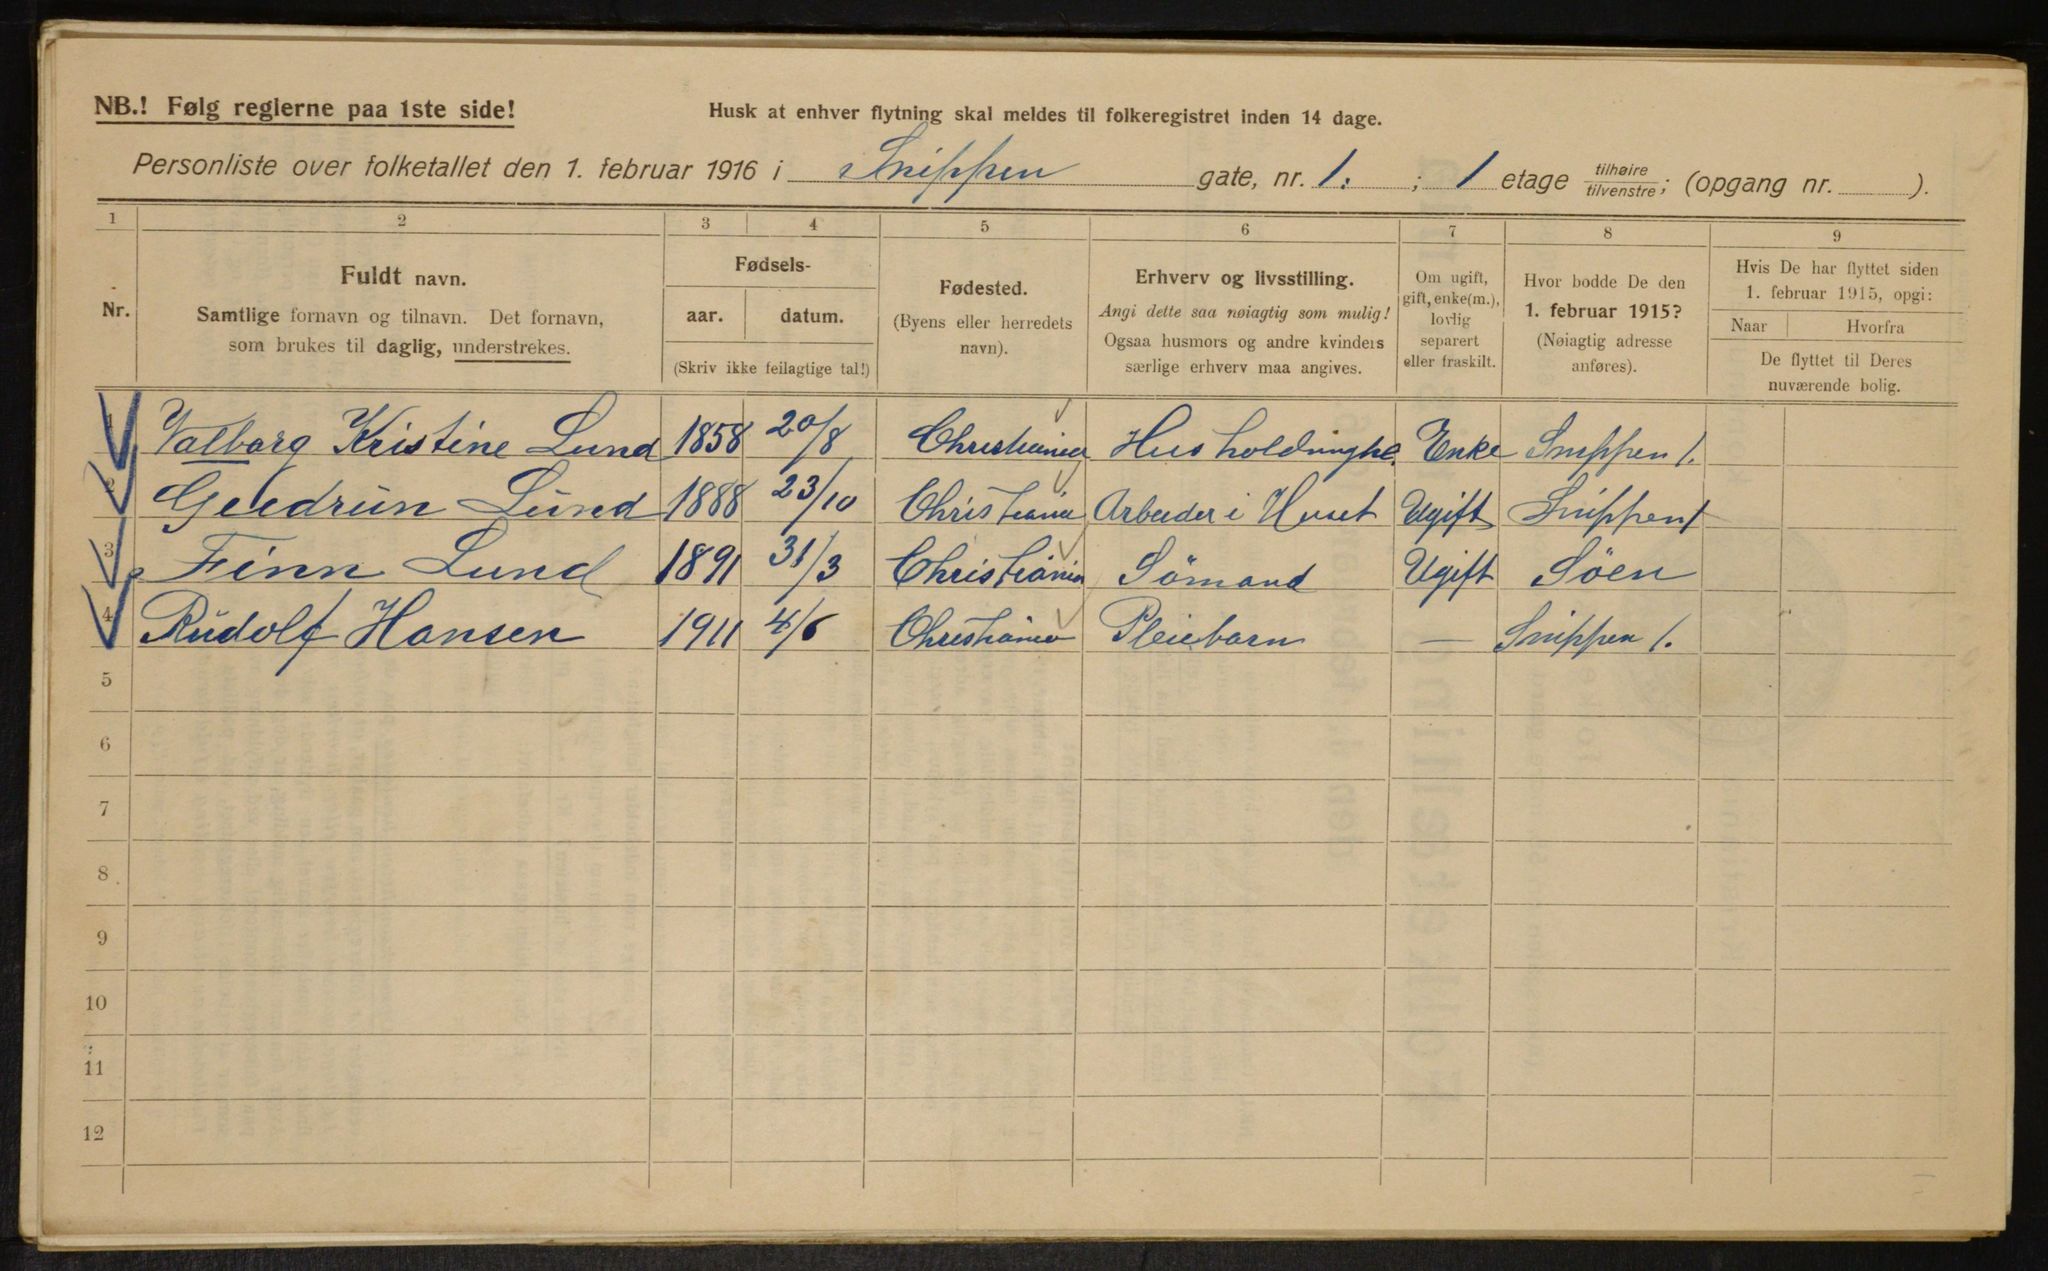 NB.! Følg reglerne paa 1ste side!
Husk at enhver flytning skal meldes til folkeregistret inden 14 dage.
Personliste over folketallet den 1. februar 1916 i Snippen gate, nr. 1. ; 1 etage tilhøire/tilvenstre; (opgang nr. ).
1 2 3 4 5 6 7 8 9
Nr.
Fuldt navn.
Samtlige fornavn og tilnavn. Det fornavn,
som brukes til daglig, understrekes.
Fødsels-
aar. datum.
(Skriv ikke feilagtige tal!)
Fødested.
(Byens eller herredets
navn).
Erhverv og livsstilling.
Angi dette saa nøiagtig som mulig!
Ogsaa husmors og andre kvinders
særlige erhverv maa angives.
Om ugift,
gift, enke(m.),
lovlig
separert
eller fraskilt.
Hvor bodde De den
1. februar 1915?
(Nøiagtig adresse
anføres).
Hvis De har flyttet siden
1. februar 1915, opgi:
Naar Hvorfra
De flyttet til Deres
nuværende bolig.
1 Valborg Kristine Lund 1858 20/8 Christiania Husholdninghe. Enke Snippen 1.
2 Gudrun Lund 1888 23/10 Christiania Arbeider i Huset Ugift Snippen 1
3 Finn Lund 1891 31/3 Christiania Sömand Ugift Söen
4 Rudolf Hansen 1911 4/6 Christiania Pleiebarn — Snippen 1.
5
6
7
8
9
10
11
12